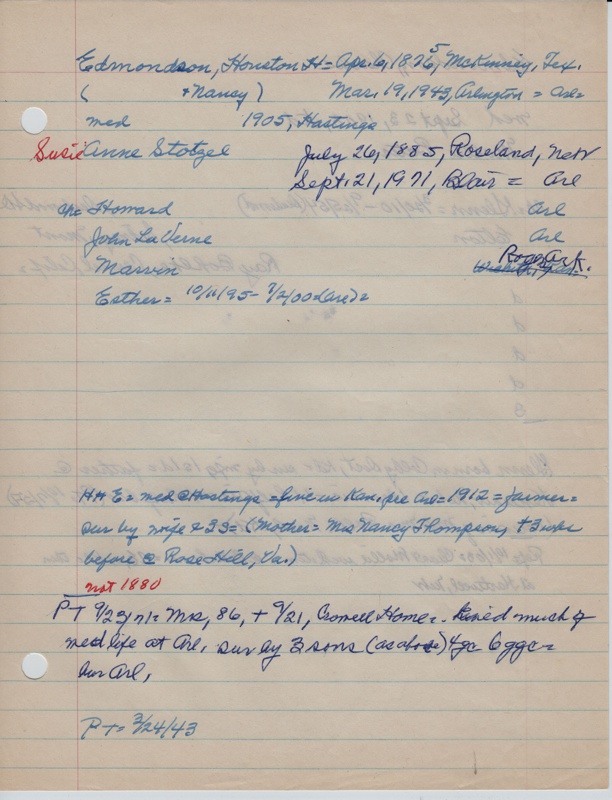 Edmondson, Houston H = Apr. 6, 1876, 5 McKinney, Tex.
( + Nancy) Mar. 19, 1943, Arlington = Arl=
med 1905, Hastings
Susie Anne Stotzel July 26, 1885, Roseland, Nebr
Sept. 21, 1971, Blair = Arl
Howard Arl
John LaVerne Arl
Marvin Rogers Ark.
Esther = 10/11/95 - 7/2/00 d (Arl) =
HHE = med @ Hastings = five in Kan. pre Arl = 1912 = farmer =
sur by wife & 3s = (Mother = Mrs Nancy Thompson, + 3 wks
before @ Rose Hill, Va.)
not 1880
PT 9/23/71 = Mrs, 86, + 9/21, Crowell Home =. Lived much of
med life at Arl, sur by 3 sons (as above) 4gc 6ggc =
bur Arl,
PT = 3/24/43